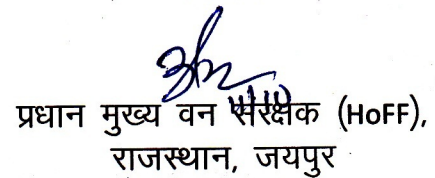 प्रधान मुख्य वन संरक्षक (HoFF),
राजस्थान, जयपुर